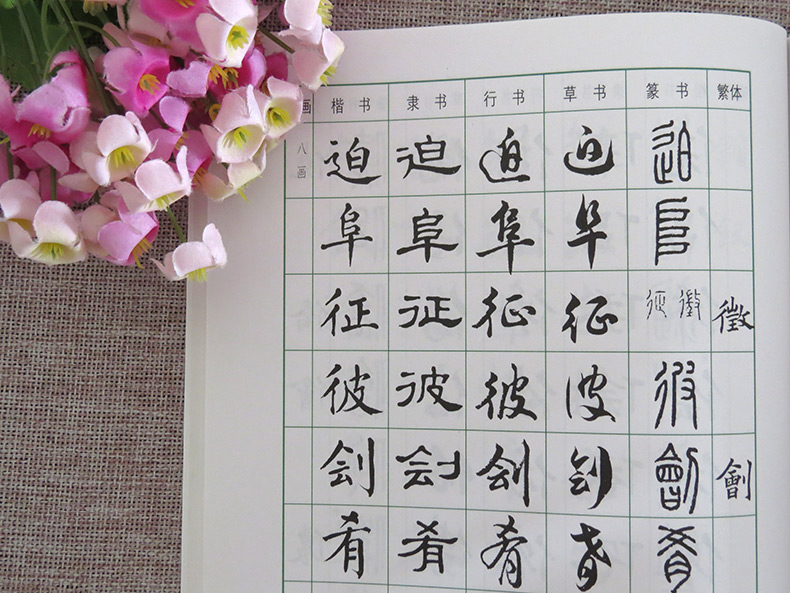 画 楷书 隶书 行书 草书 篆书 繁体
八画 迫 迫 迫 迫 迫
阜 阜 阜 阜 阜
征 征 征 征 征 徵 徵
彼 彼 彼 彼 彼
刽 刽 刽 刽 劊 劊
肴 肴 肴 肴 肴